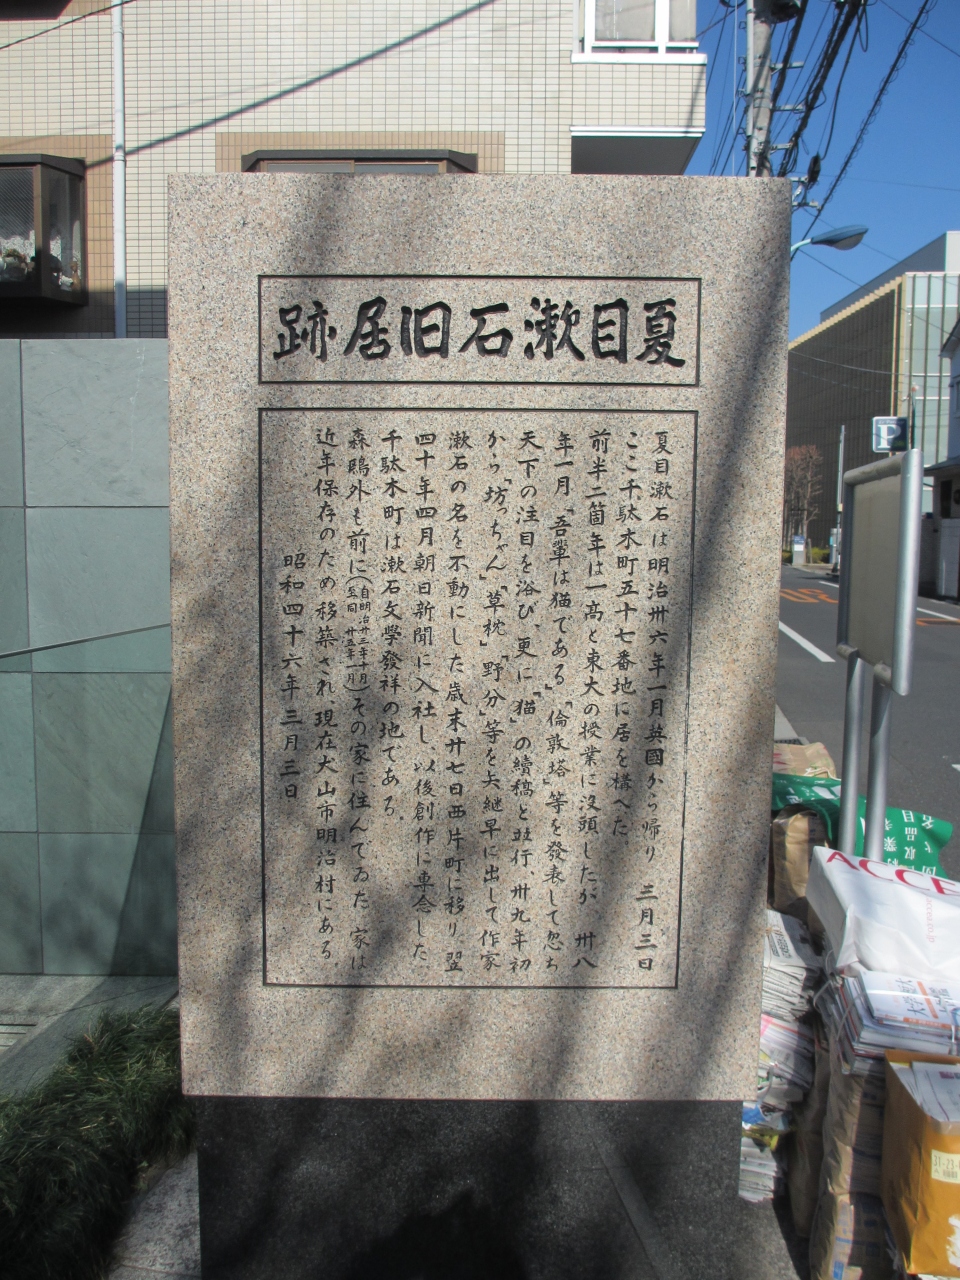 夏目漱石旧居跡
夏目漱石は明治卅六年一月英國から帰り　三月三日
ここ千駄木町五十七番地に居を構へた
前半二箇年は一高と東大の授業に没頭したが、卅八
年一月「吾輩は猫である」「倫敦塔」等を發表して忽ち
天下の注目を浴び、更に「猫」の續稿と竝行、卅九年初
から「坊っちゃん」「草枕」「野分」等を矢継早に出して作家
漱石の名を不動にした歳末廿七日西片町に移り、翌
四十年四月朝日新聞に入社し、以後創作に専念した
千駄木町は漱石文學發祥の地である
森鷗外も前に（自明治廿三年十月至同廿五年一月）その家に住んでゐた　家は
近年保存のため移築され、現在犬山市明治村にある
昭和四十六年三月三日
P
ACCE